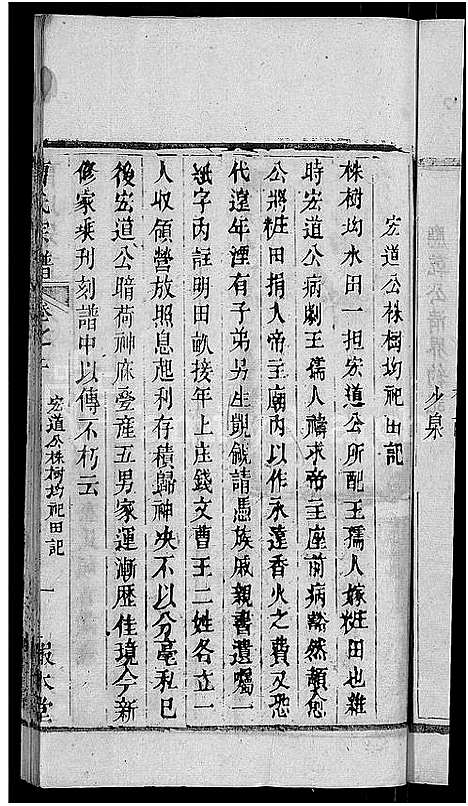 宏道公株樹均祀田記
株樹均水田一担宏道公所配王孺人嫁粧田也維
時宏道公病劇王孺人禱求帝主座前病豁然頓愈
公將粧田捐入帝主廟內以作永遠香火之費又恐
代遠年湮有子弟另生覬覦請憑族戚親書遺囑一
紙字內註明田畝接年上庄錢文曹王二姓各立一
人收領營放照息起利存積歸神决不以分毫私已
後宏道公暗荷神庥叠產五男家運漸歷佳境今新
修家乘刊刻譜中以傳不朽云
氏宗譜
卷之
宏道公株樹均祀田記
一
報本堂